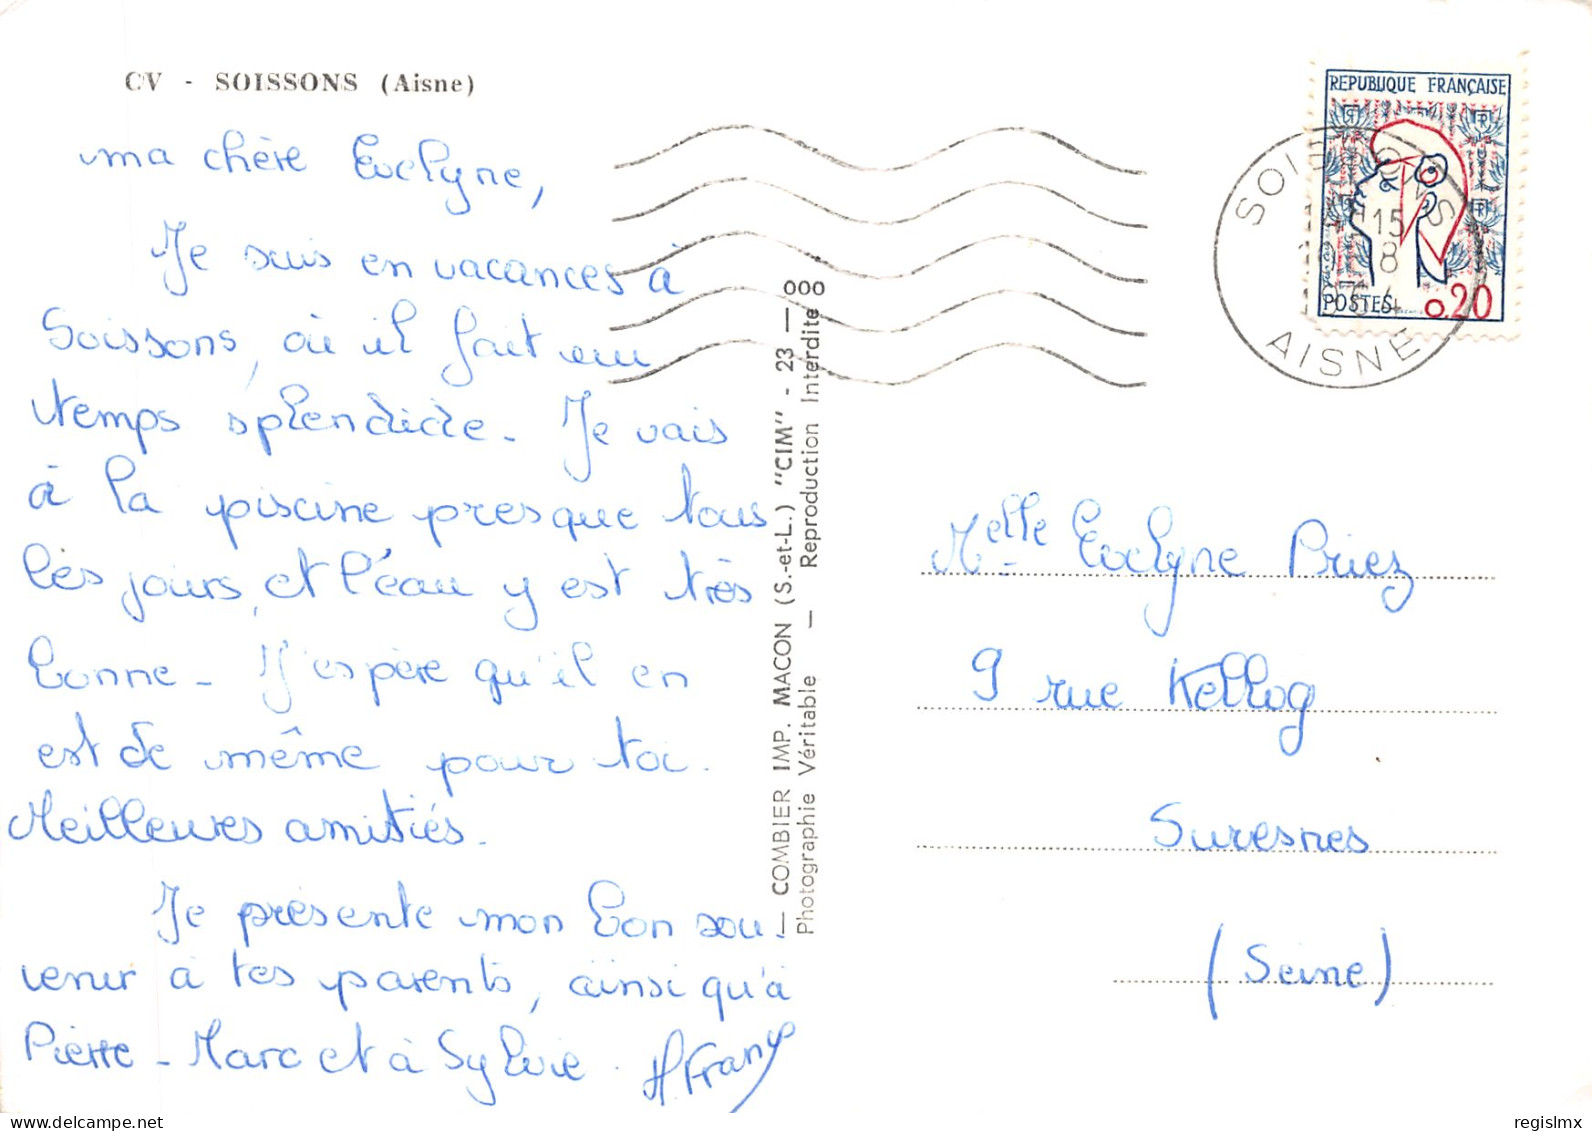 CV - SOISSONS (Aisne)
ma chère Evelyne,
Je suis en vacances à
Soissons, où il fait un
temps splendide. Je vais
à la piscine presque tous
les jours, et l'eau y est très
bonne - J'espère qu'il en
est de même pour toi.
Meilleures amitiés.
Je présente mon bon sou-
venir à tes parents, ainsi qu'à
Pierre-Marc et à Sylvie.
— COMBIER IMP. MACON (S.-et-L.) "CIM" - 23 — 000
Photographie Véritable — Reproduction Interdite
REPUBLIQUE FRANÇAISE
POSTES 0,20
SOISSONS
15
8
AISNE
Melle Evelyne Priez
9 rue Kellog
Suresnes
(Seine)
www.delcampe.net
regislmx